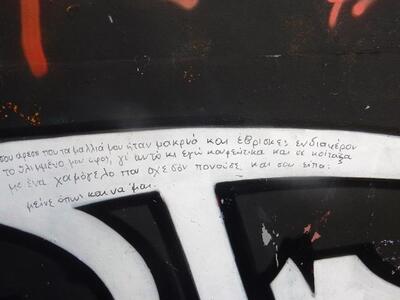 σου άρεσε που τα μαλλιά μου ήταν μακρυά και έβρισκες ενδιαφέρον
το θλιμμένο μου ύφος, γι' αυτό κι εγώ καψώτικα και σε κοίταξα
με ένα χαμόγελο που σχεδόν πονούσε και σου είπα:
μείνε όπως και να 'μαι.